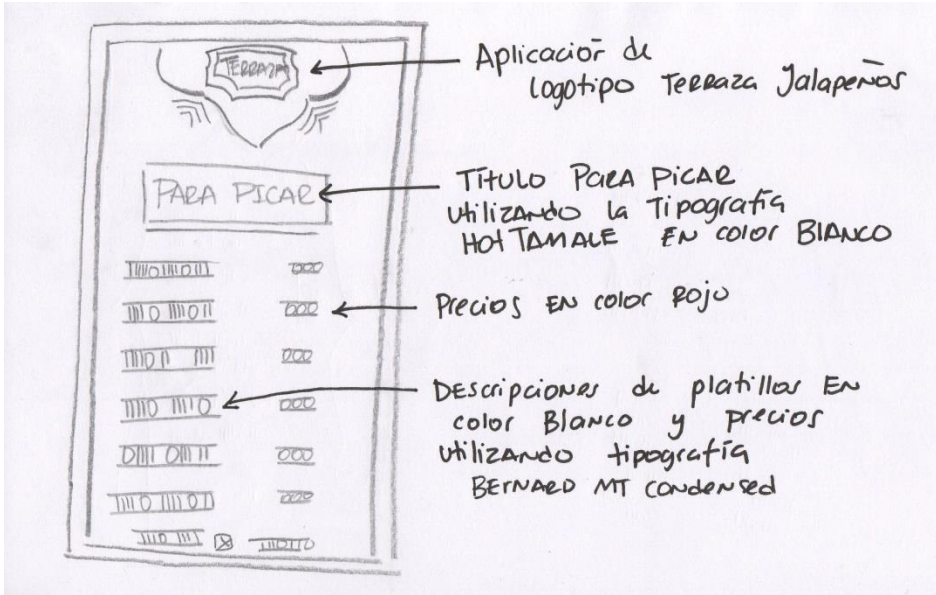 TERRAZA
Aplicación de
logotipo Terraza Jalapeños
PARA PICAR
Título PARA PICAR
utilizando la Tipografía
HOT TAMALE EN color BLANCO
Precios EN color Rojo
Descripciones de platillos EN
color Blanco y precios
utilizando tipografía
BERNARD MT CONDENSED